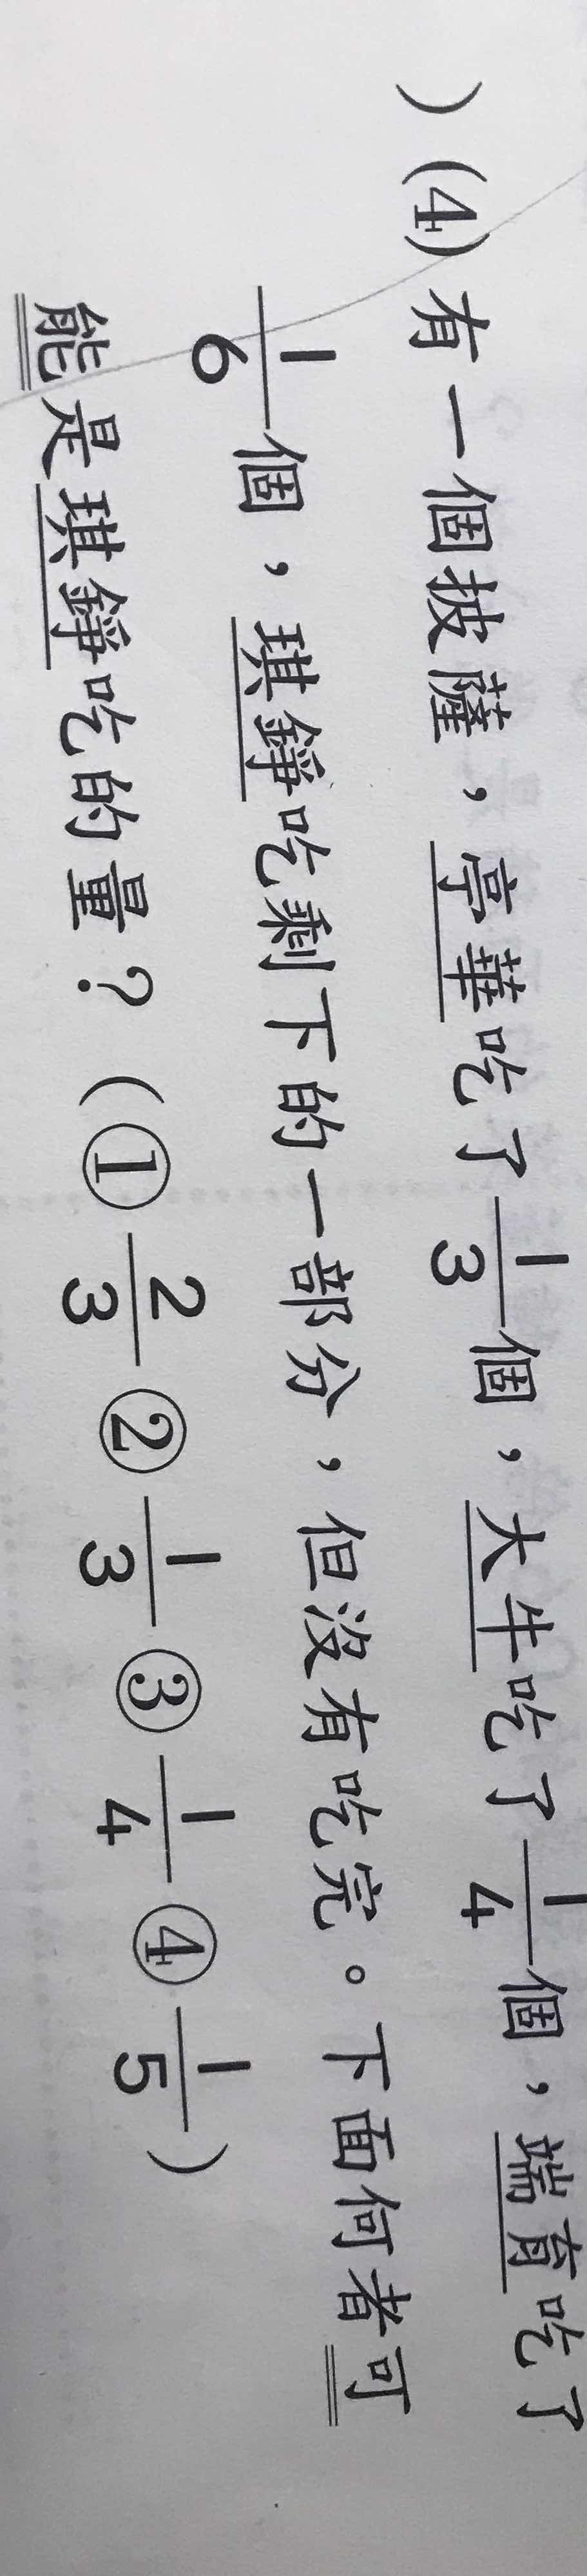 ）(4) 有一個披薩，亭華吃了 1/3 個，大牛吃了 1/4 個，端育吃了
1/6 個，琪錚吃剩下的一部分，但沒有吃完。下面何者可
能是琪錚吃的量？（① 2/3 ② 1/3 ③ 1/4 ④ 1/5）